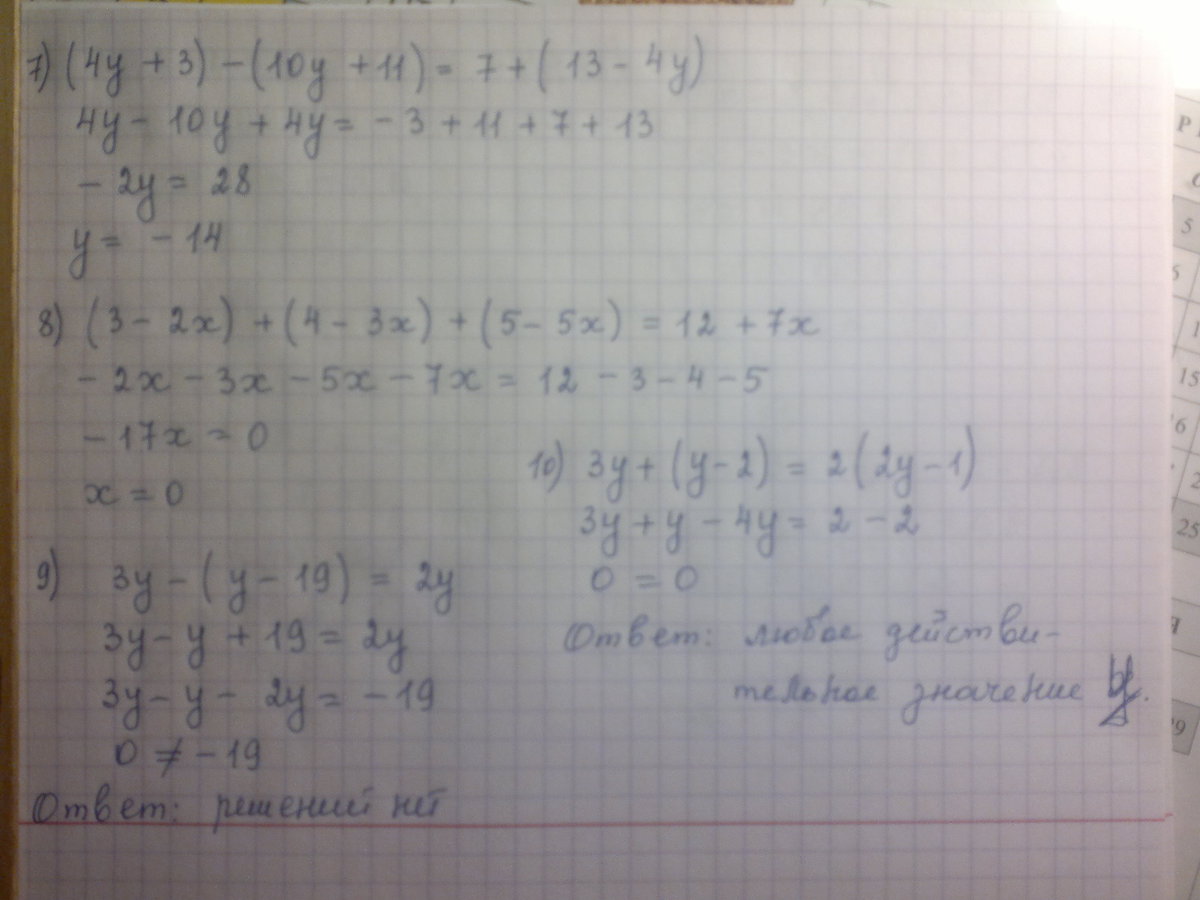 7) (4y + 3) - (10y + 11) = 7 + (13 - 4y)
4y - 10y + 4y = - 3 + 11 + 7 + 13
- 2y = 28
y = - 14
8) (3 - 2x) + (4 - 3x) + (5 - 5x) = 12 + 7x
- 2x - 3x - 5x - 7x = 12 - 3 - 4 - 5
- 17x = 0
x = 0
9) 3y - (y - 19) = 2y
3y - y + 19 = 2y
3y - y - 2y = - 19
0 ≠ - 19
Ответ: решений нет
10) 3y + (y - 2) = 2(2y - 1)
3y + y - 4y = 2 - 2
0 = 0
Ответ: любое действи-
тельное значение y.
P
5
15
25